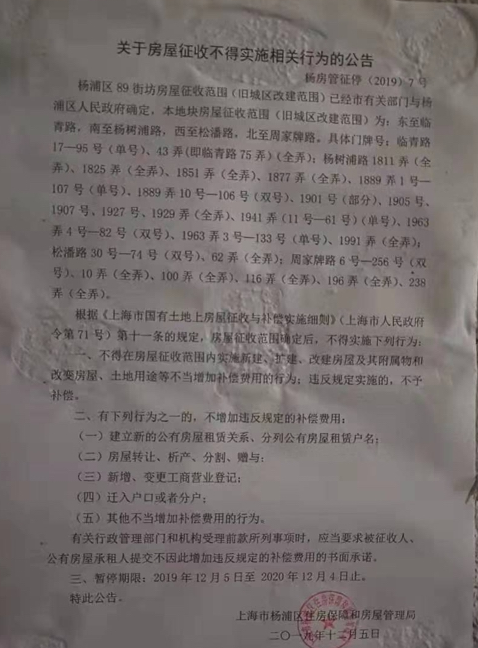 关于房屋征收不得实施相关行为的公告
杨房管征停（2019）7号
杨浦区89街坊房屋征收范围（旧城区改建范围）已经市有关部门与杨
浦区人民政府确定，本地块房屋征收范围（旧城区改建范围）为：东至临
青路，南至杨树浦路，西至松潘路，北至周家牌路。具体门牌号：临青路
17—95号（单号）、43弄(即临青路75弄)（全弄）；杨树浦路1811弄（全
弄）、1825弄（全弄）、1851弄（全弄）、1877弄（全弄）、1889弄1号—
107号（单号）、1889弄10号—106号（双号）、1901号（部分）、1905号、
1907号、1927号、1929弄（全弄）、1941弄（11号—61号）（单号）、1963
弄4号—82号（双号）、1963弄3号—133号（单号）、1991弄（全弄）；
松潘路30号—74号（双号）、62弄（全弄）；周家牌路6号—256号（双
号）、10弄（全弄）、100弄（全弄）、116弄（全弄）、196弄（全弄）、238
弄（全弄）。
根据《上海市国有土地上房屋征收与补偿实施细则》（上海市人民政府
令第71号）第十一条的规定，房屋征收范围确定后，不得实施下列行为：
一、不得在房屋征收范围内实施新建、扩建、改建房屋及其附属物和
改变房屋、土地用途等不当增加补偿费用的行为；违反规定实施的，不予
补偿。
二、有下列行为之一的，不增加违反规定的补偿费用：
（一）建立新的公有房屋租赁关系、分列公有房屋租赁户名；
（二）房屋转让、析产、分割、赠与；
（三）新增、变更工商营业登记；
（四）迁入户口或者分户；
（五）其他不当增加补偿费用的行为。
有关行政管理部门和机构受理前款所列事项时，应当要求被征收人、
公有房屋承租人提交不因此增加违反规定的补偿费用的书面承诺。
三、暂停期限：2019年12月5日至2020年12月4日止。
特此公告。
上海市杨浦区住房保障和房屋管理局
二〇一九年十二月五日